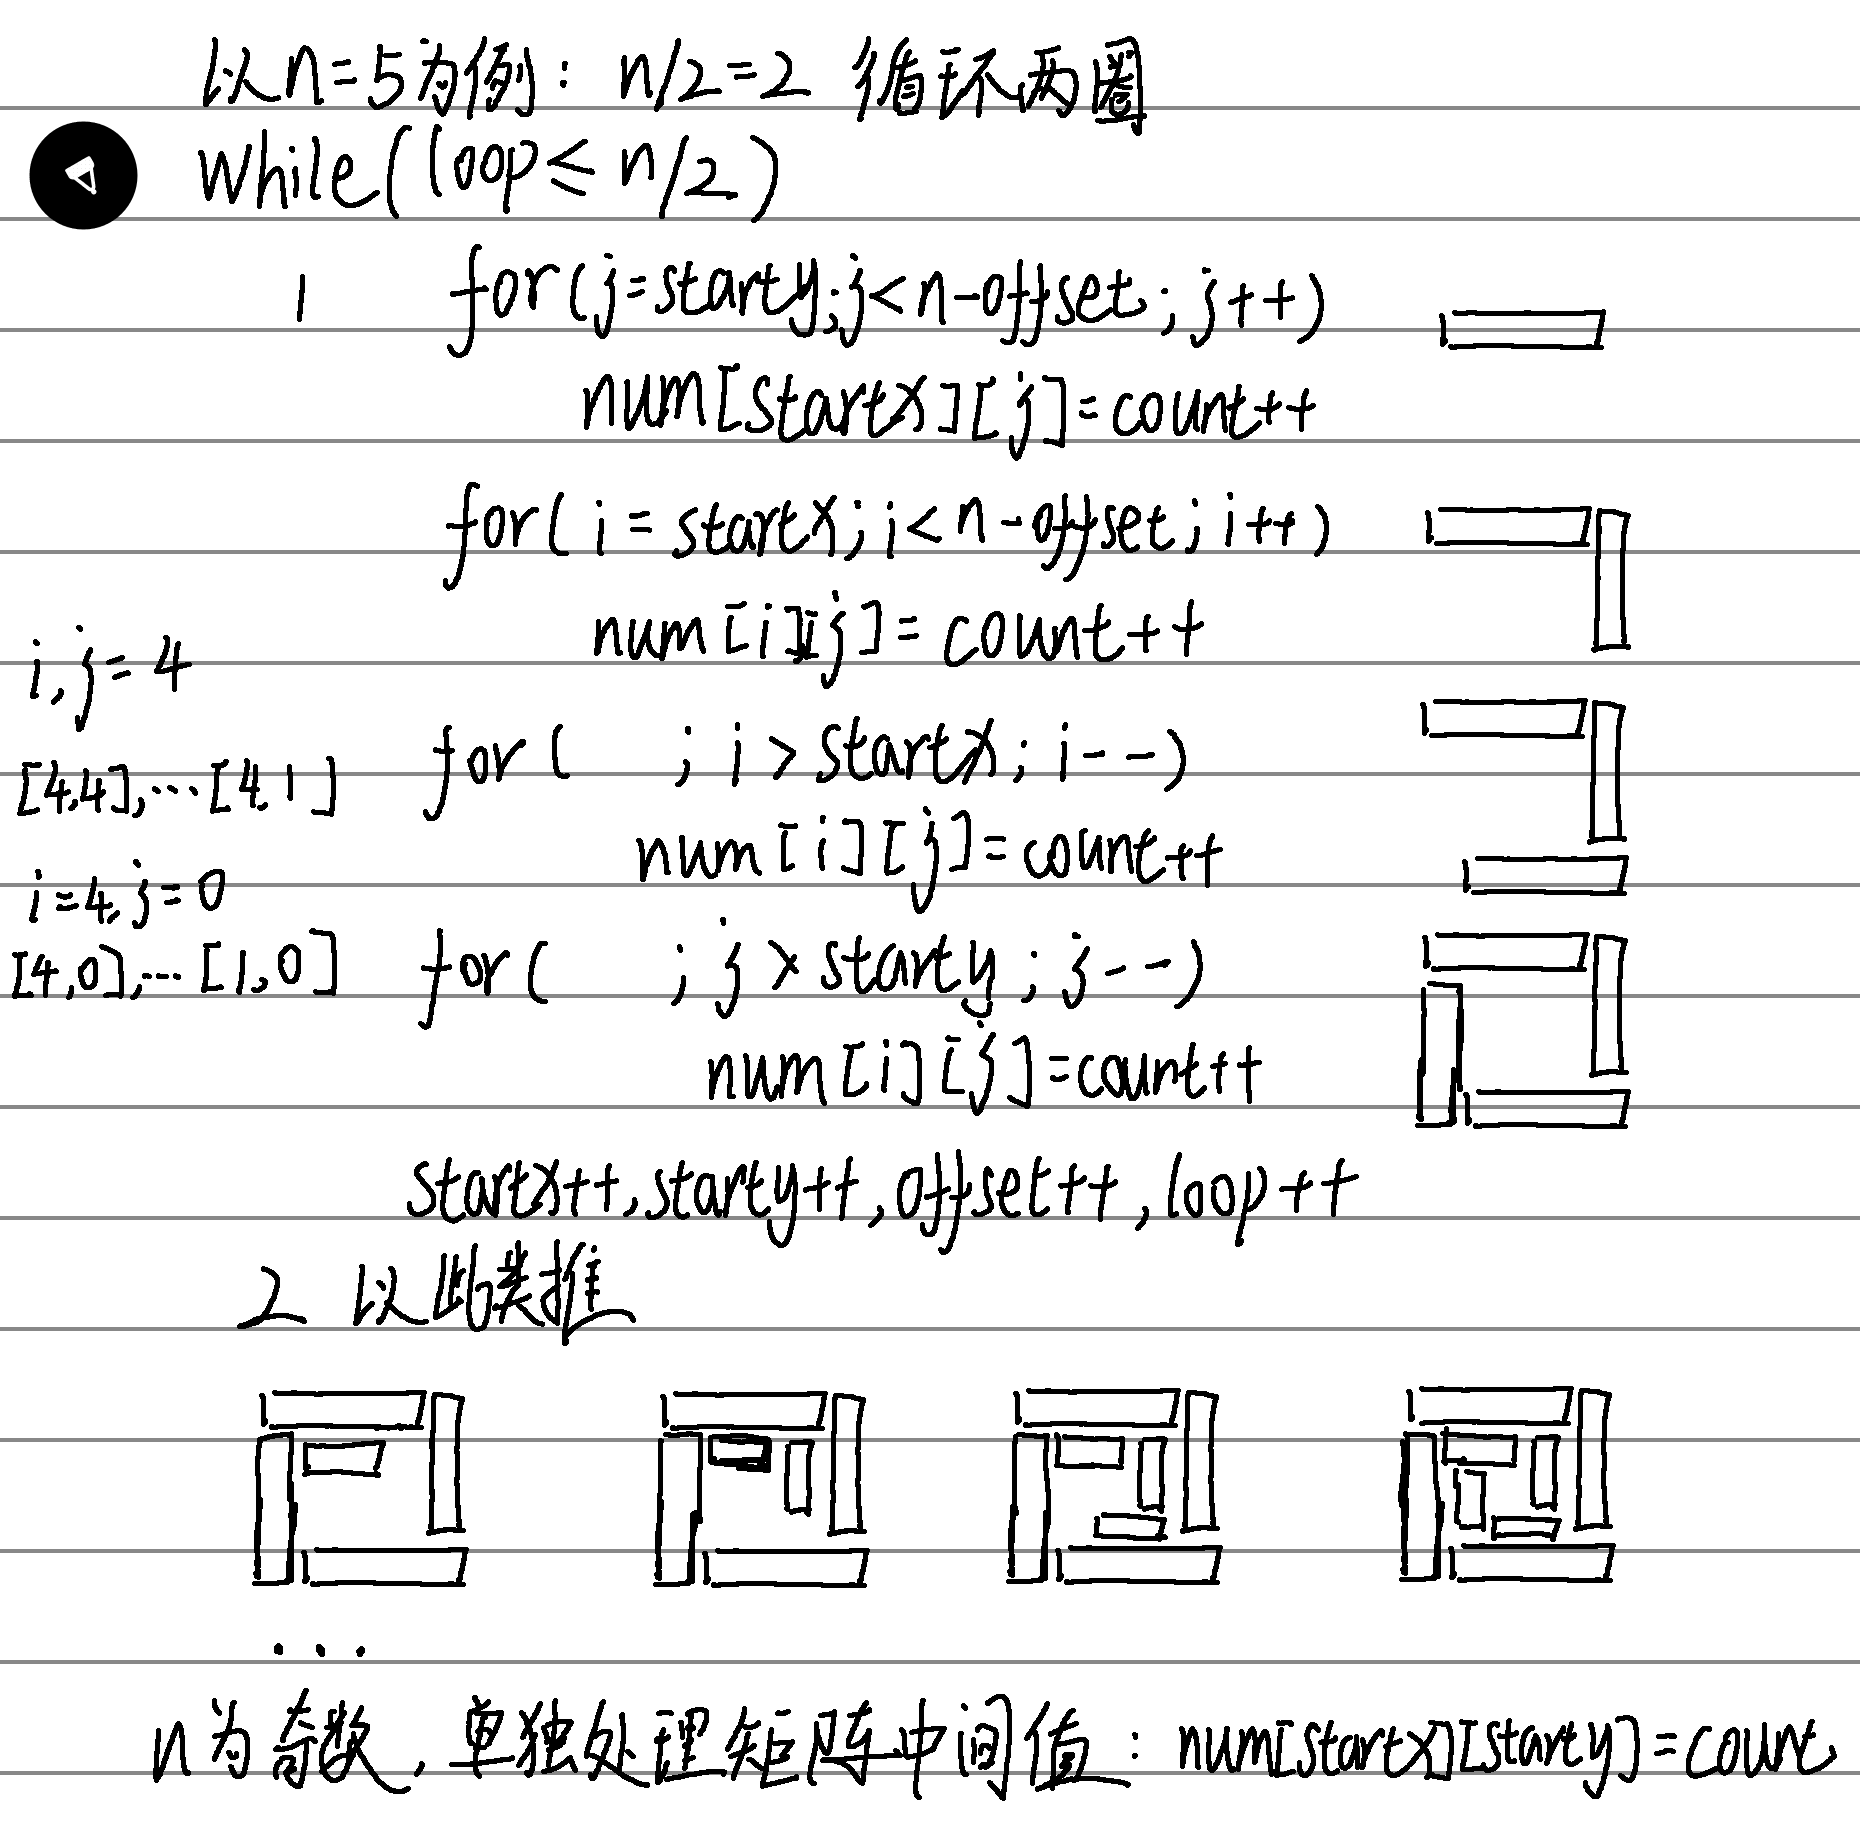 以n=5为例: n/2=2 循环两圈
while(loop≤n/2)
1 for(j=starty;j<n-offset; j++)
num[startx][j]=count++
for(i=startx;i<n-offset;i++)
num[i][j]=count++
i,j=4
for( ; i>startx; i--)
[4,4],…[4,1]
num[i][j]=count++
i=4,j=0
for( ; j>starty; j--)
[4,0],…[1,0]
num[i][j]=count++
startx++,starty++,offset++,loop++
2 以此类推
...
n为奇数,单独处理矩阵中间值: num[startx][starty]=count